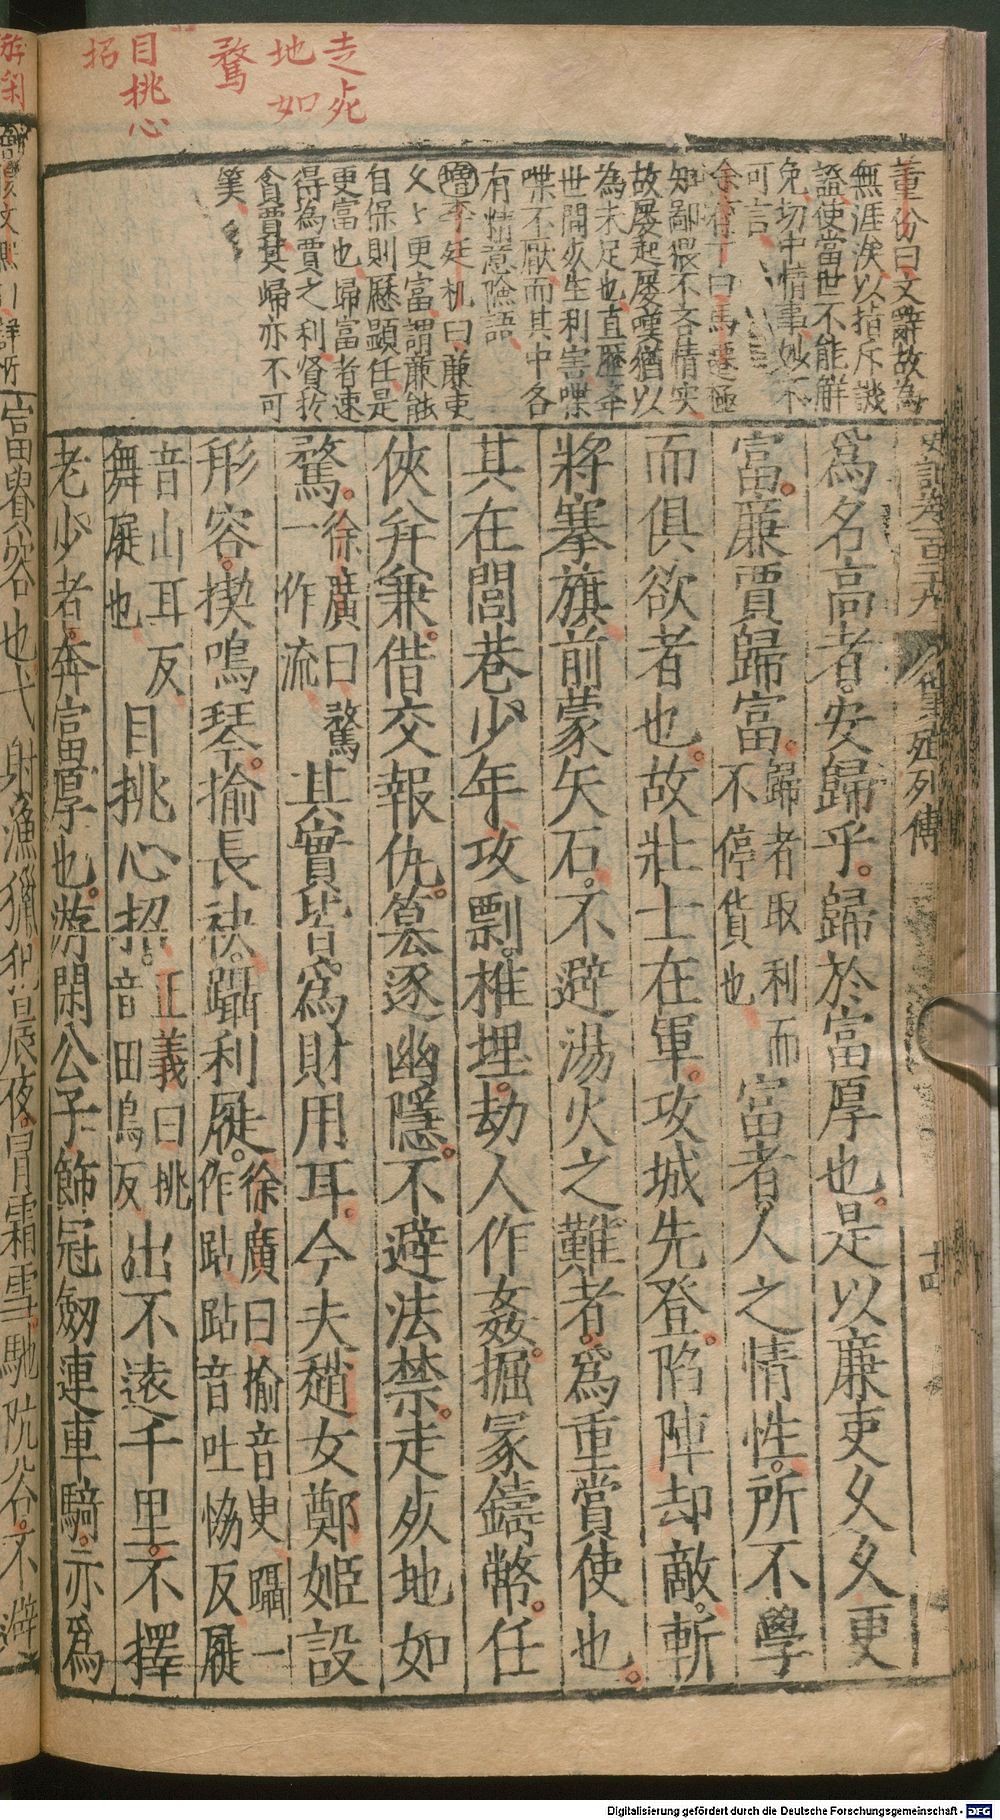 走死
地如
騖
目挑心
招
董份曰文辭故為
無涯涘以指斥譏
證使當世不能解
免切中情事妙不
可言
余有丁曰馬遷極
知鄙猥不吝情实
故屡起屡嘆猶以
為未足也直歷牽
世間死生利害喋
喋不厭而其中各
有情意隂語
增李廷机曰亷吏
久久更富謂亷能
自保則歷顕任是
更富也歸富者速
得為賈之利賢於
貪賈其歸亦不可
笑
史記卷百二十九 貨殖列傳 十四
爲名高者安歸乎歸於富厚也是以廉吏久久更
富廉賈歸富歸者取利而不停貨也富者人之情性所不學
而俱欲者也故壯士在軍攻城先登陷陣却敵斬
將搴旗前蒙矢石不避湯火之難者爲重賞使也
其在閭巷少年攻剽椎埋劫人作姦掘冢鑄幣任
俠并兼借交報仇篡逐幽隱不避法禁走死地如
騖徐廣曰騖一作流其實皆爲財用耳今夫趙女鄭姬設
形容揳鳴琴揄長袂躡利屣徐廣曰揄音臾躡一作跕跕音吐恊反屣
音山耳反舞屣也目挑心招正義曰挑音田鳥反出不遠千里不擇
老少者奔富厚也游閑公子飾冠劒連車騎亦爲
富貴容也弋射漁獵犯晨夜冒霜雪馳阬谷不避
Digitalisierung gefördert durch die Deutsche Forschungsgemeinschaft - DFG